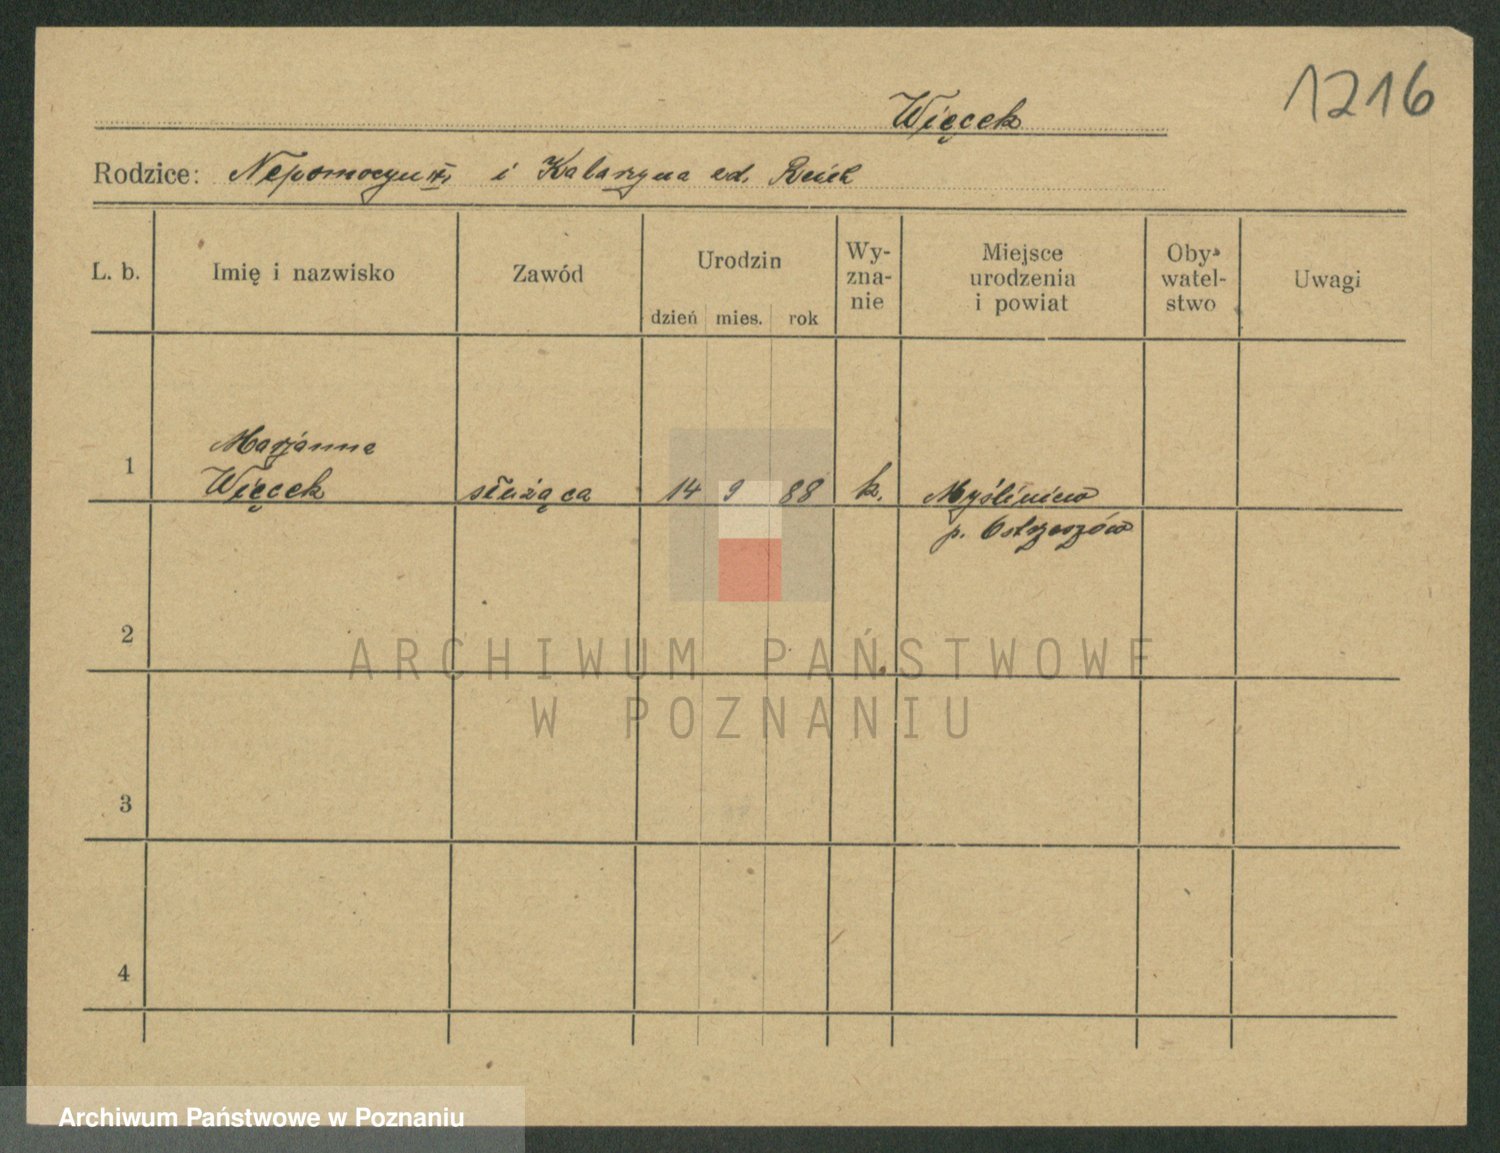 1216
Więcek
Rodzice: Nepomocyn i Katarzyna zd.
L. b. Imię i nazwisko Zawód Urodzin Wyznanie Miejsce urodzenia i powiat Obywatelstwo Uwagi
dzień mies. rok
Marjanna
1 Więcek służąca 14 9 88 k. Myśliniew
p. Ostrzeszów
2
ARCHIWUM PAŃSTWOWE
W POZNANIU
3
4
Archiwum Państwowe w Poznaniu